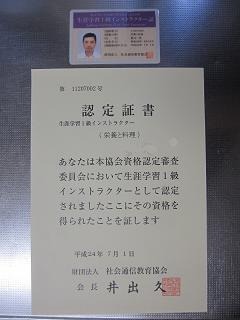 生涯学習1級インストラクター証
第 11207002 号
認定証書
生涯学習1級インストラクター
(栄養と料理)
あなたは本協会資格認定審査
委員会において生涯学習1級
インストラクターとして認定
されましたここにその資格を
得られたことを証します
平成24年 7月 1日
財団法人 社会通信教育協会
会長 井出 久